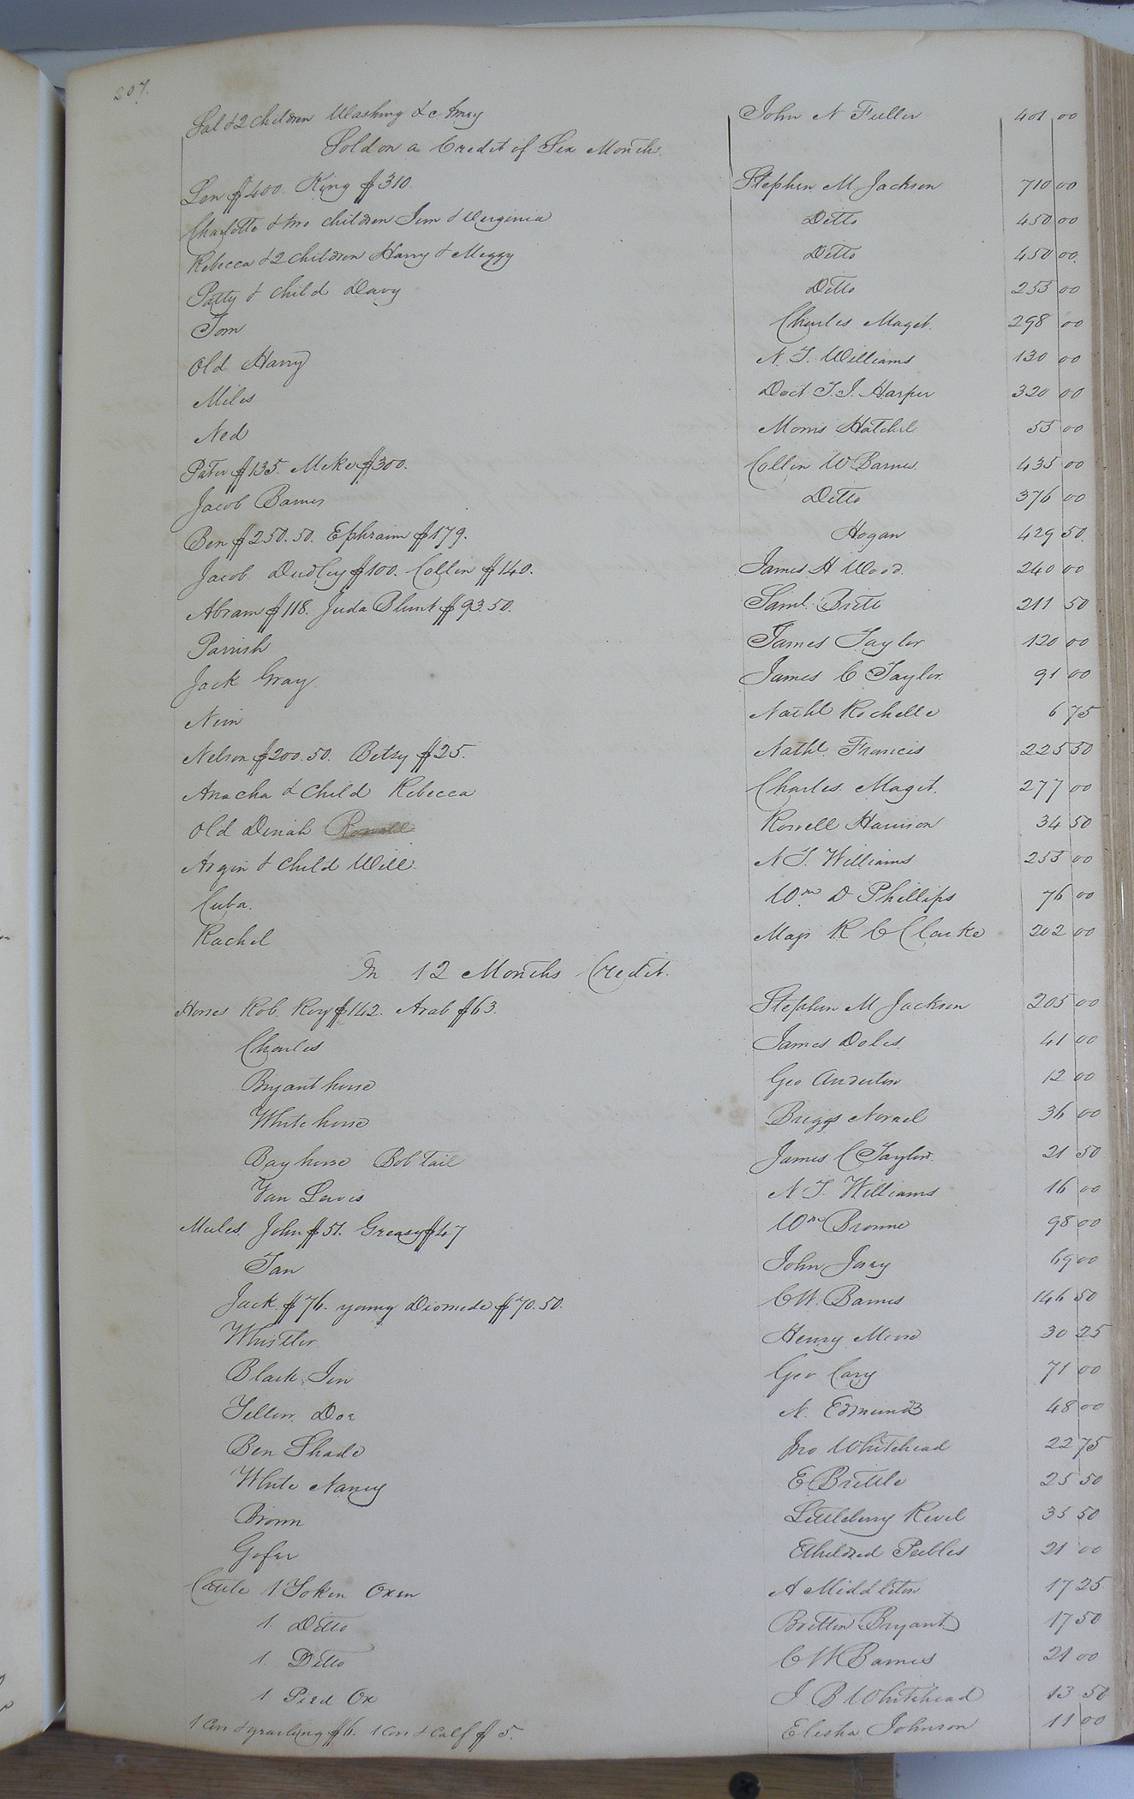 207.
Sal & 2 children Washing & c Amy John N Fuller 401 00
Sold on a Credit of Six Months.
Len $400. King $310. Stephen M Jackson 710 00
Charlotte & two children Jim & Verginia Ditto 450 00
Rebecca & 2 children Harry & Meggy Ditto 450 00.
Patty & child Davy Ditto 255 00
Tom Charles Maget. 298 00
Old Harry N. T. Williams 130 00
Miles Doct T. I. Harper 320 00
Ned Morris Hatchel 55 00
Peter $135. Mike $300. Collin W Barnes. 435 00
Jacob Barnes Ditto 376 00
Ben $250.50. Ephraim $179. Hogan 429 50.
Jacob Dudley $100. Collin $140. James H Wood. 240 00
Abram $118. Juda Blunt $93.50. Saml. Britt 211 50
Parrish James Taylor 120 00
Jack Gray. James C Taylor. 91 00
Nim Nathl Rochelle 6 75
Nelson $200.50. Betsy $25. Nathl. Francis 225 50
Anacha & Child Rebecca Charles Maget. 277 00
Old Dinah Rowell Harrison 34 50
Argin & child Will. N T. Williams 255 00
Cuba. Wm D Phillips 76 00
Rachel Maj R C Clarke 202 00
In 12 Months Credit.
Horses Rob Roy $142. Arab $63. Stephen M Jackson 205 00
Charles James Doles 41 00
Bryant horse Geo Anderton 12 00
White horse Briggs Norvel 36 00
Bay horse Bob tail James C Taylor. 21 50
Van Lewis N T. Williams 16 00
Mules. John $51. Greasy $47 Wm Browne 98 00
Tan John Joray 69 00
Jack $76. young Diomede $70.50. C W. Barnes 146 50
Whistler Henry Moore 30 25
Black Jin Geo Cary 71 00
Yellow Doe N. Edmunds 48 00
Ben Shade Jno Whitehead 22 75
White Nancy E Brittle 25 50
Brown Littleberry Revel 35 50
Gofer Ethildred Peebles 21 00
Cattle 1 Yoken Oxen A Middleton 17 25
1 Ditto Britton Bryant 17 50
1. Ditto C W Barnes 21 00
1 Pied Ox J B Whitehead 13 50
1 Cow & yearling $6. 1 Cow & Calf $5. Elisha Johnson 11 00